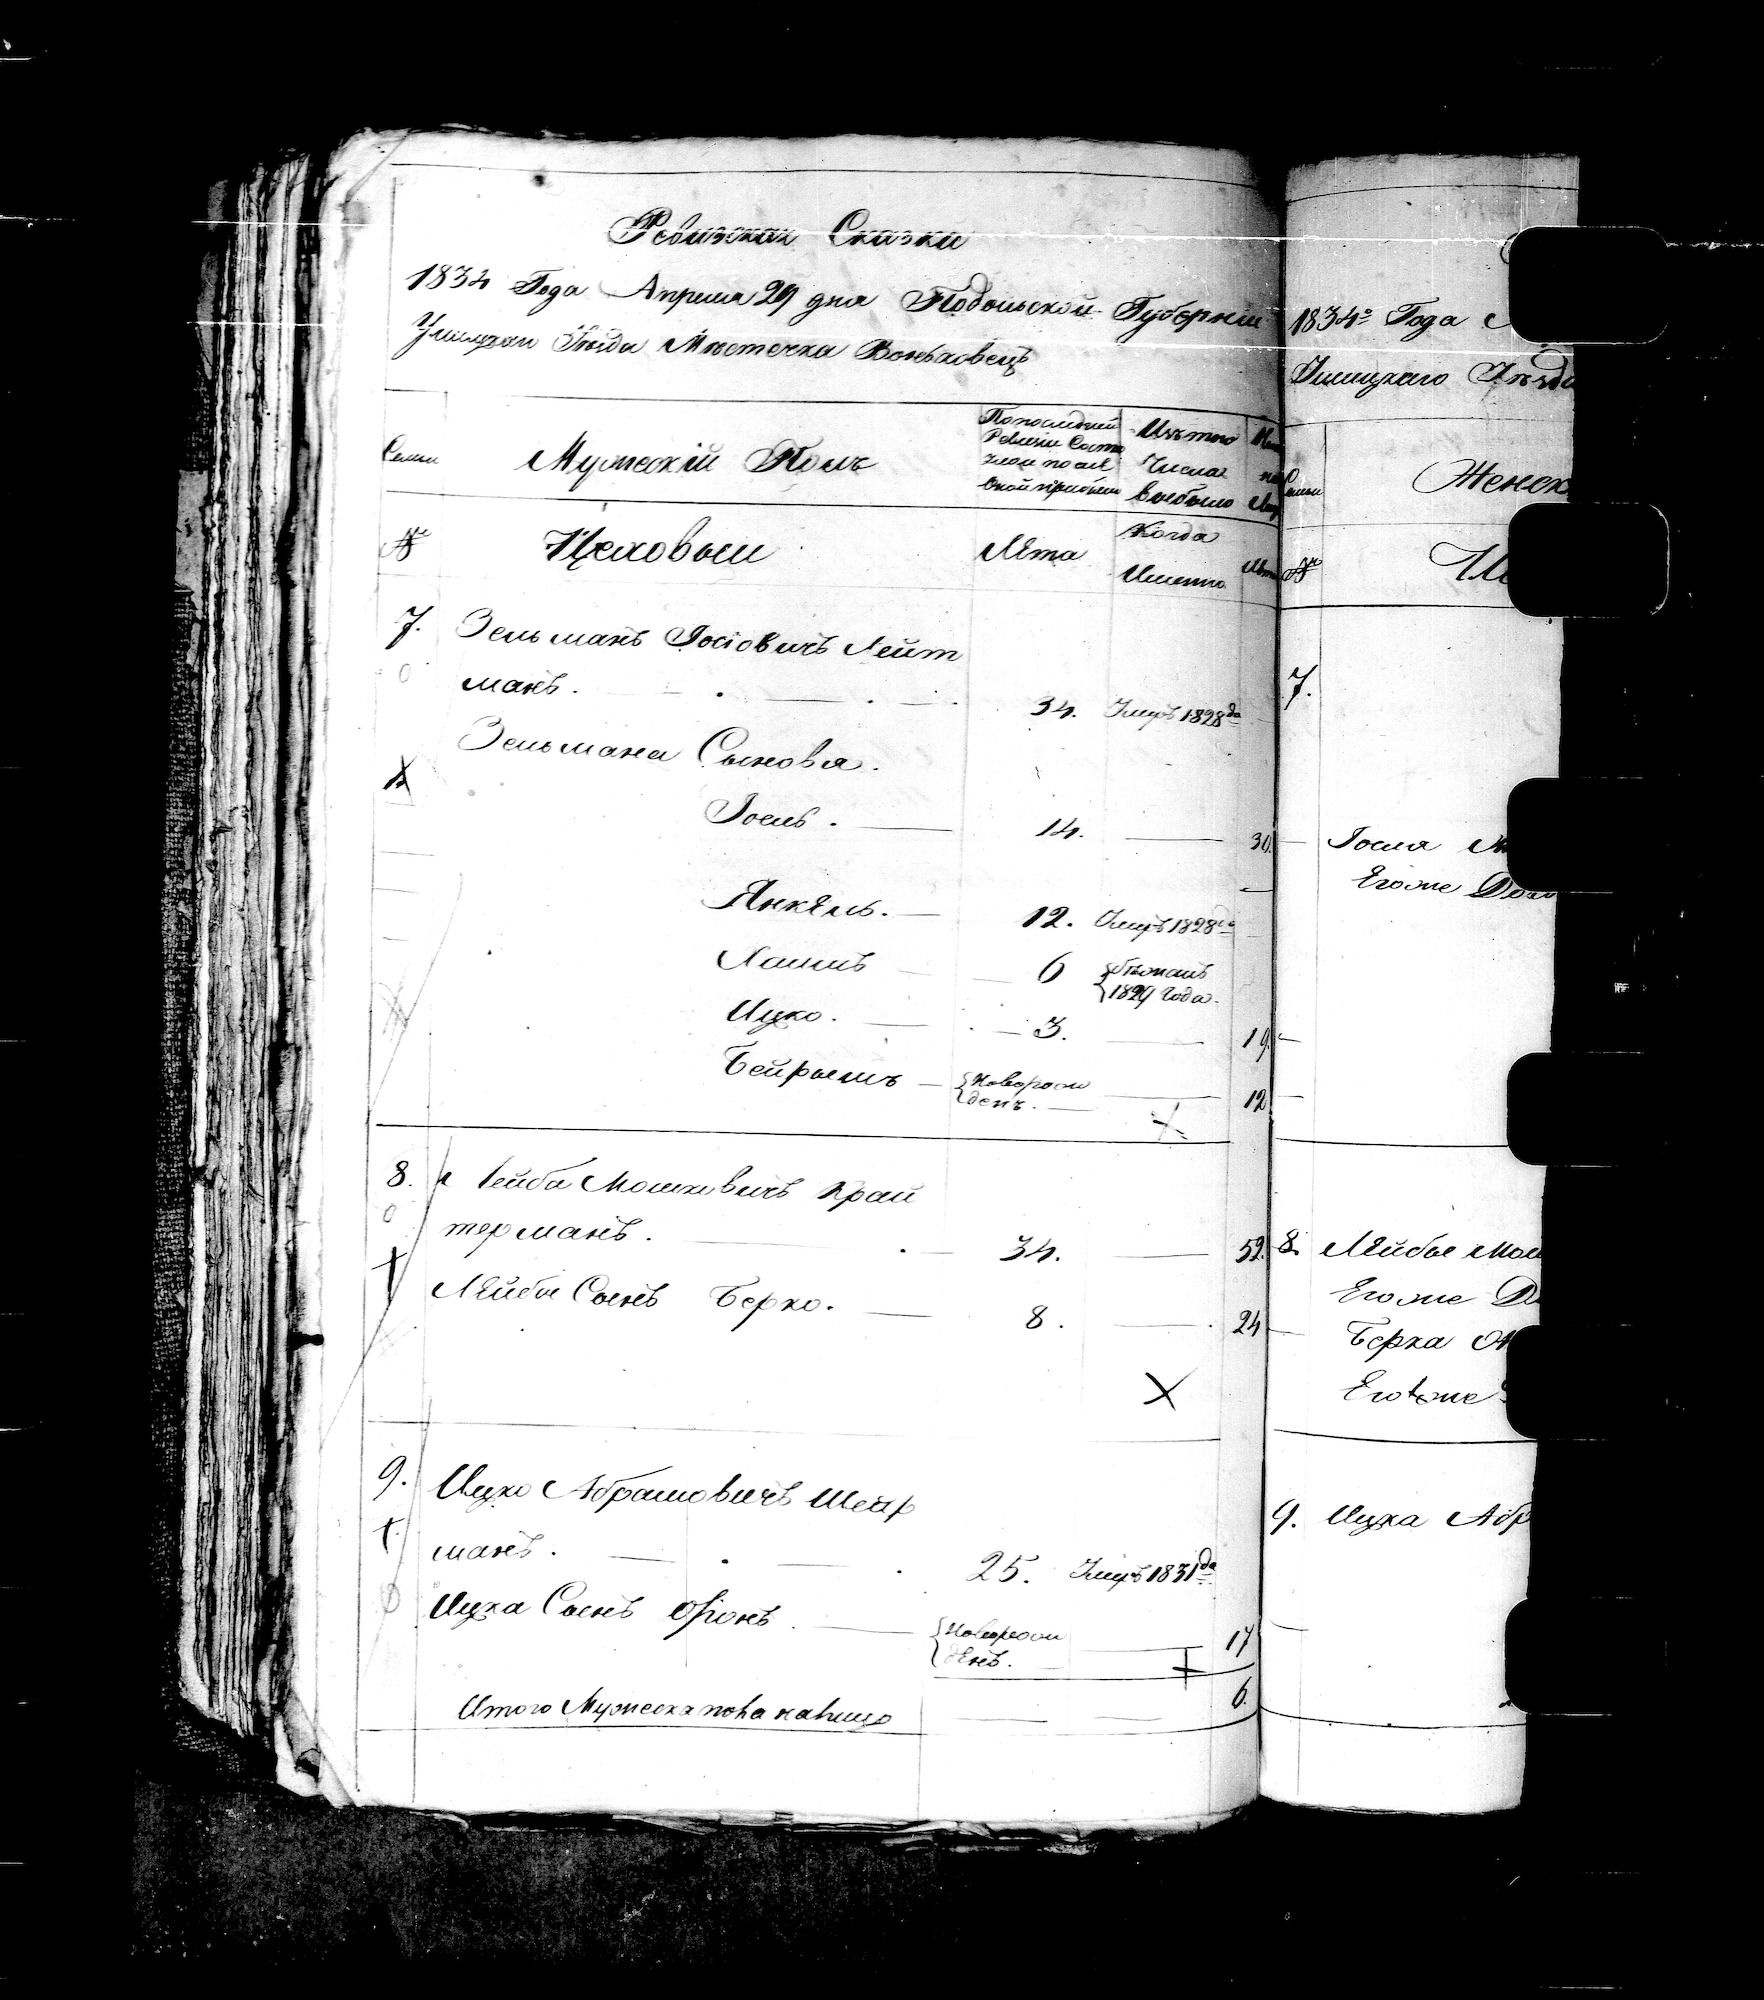 Ревизская Сказка
1834 Года Апреля 29 дня Подольской Губернии
Ушицкаго Уѣзда Мѣстечка Воньковецъ
Семьи
Мужескій Полъ
По последней Ревизіи Состояло и после оной прибыло
Изъ того Числа выбыло
№
Цеховыи
Лѣта
Когда Именно
Лѣта
7. Зельманъ Іосіовичъ Лейт
манъ. 34. Умеръ 1828 да
Зельмана Сыновья.
Іосель. 14. 30.
Янкель. 12. Умеръ 1828 да
Хаимъ 6 бѣжалъ 1829 года.
Ицко. 3. 19.
Бейрышъ новорожденъ. 12
8. Лейба Мошковичъ Край
терманъ. 34. 52.
Лейбы Сынъ Берко. 8. 24
9. Ицко Абрамовичъ Шейр
манъ. 25. Умеръ 1831 да
Ицка Сынъ новорожденъ. 17
Итого Мужеска пола налицо 6.
1834о Года
Ушицкаго Уѣзда
Семьи
Женск
№
7.
Іосля
Егоже
8. Лейбы Мош
Егоже
Берка
Егоже
9. Ицка Абр